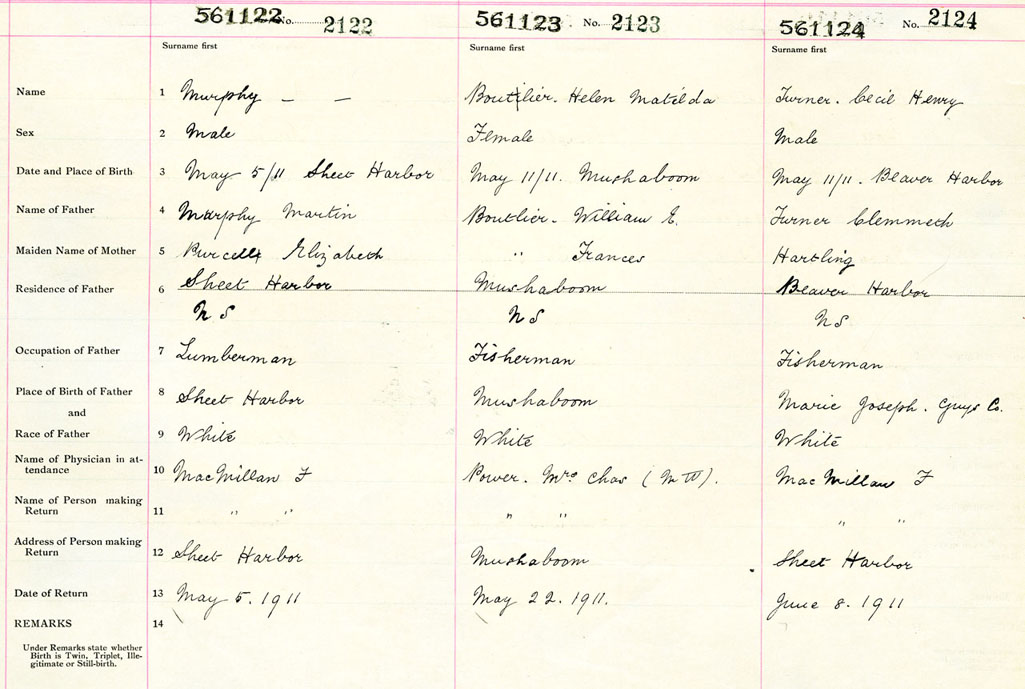 561122 No. 2122 561123 No. 2123 561124 No. 2124
Surname first Surname first Surname first
Name 1 Murphy — — Boutilier. Helen Matilda Turner. Cecil Henry
Sex 2 Male Female Male
Date and Place of Birth 3 May 5/11 Sheet Harbor May 11/11. Mushaboom May 11/11. Beaver Harbor
Name of Father 4 Murphy Martin Boutlier. William E. Turner Clemmeth
Maiden Name of Mother 5 Purcell Elizabeth " Frances Hartling
Residence of Father 6 Sheet Harbor Mushaboom Beaver Harbor
N S N S N S
Occupation of Father 7 Lumberman Fisherman Fisherman
Place of Birth of Father 8 Sheet Harbor Mushaboom Marie Joseph. Guys Co.
and
Race of Father 9 White White White
Name of Physician in at-
tendance 10 MacMillan F Power. Mrs Chas (M W). MacMillan F
Name of Person making
Return 11 " " " " " "
Address of Person making
Return 12 Sheet Harbor Mushaboom Sheet Harbor
Date of Return 13 May 5. 1911 May 22. 1911. June 8. 1911
REMARKS 14
Under Remarks state whether
Birth is Twin, Triplet, Ille-
gitimate or Still-birth.